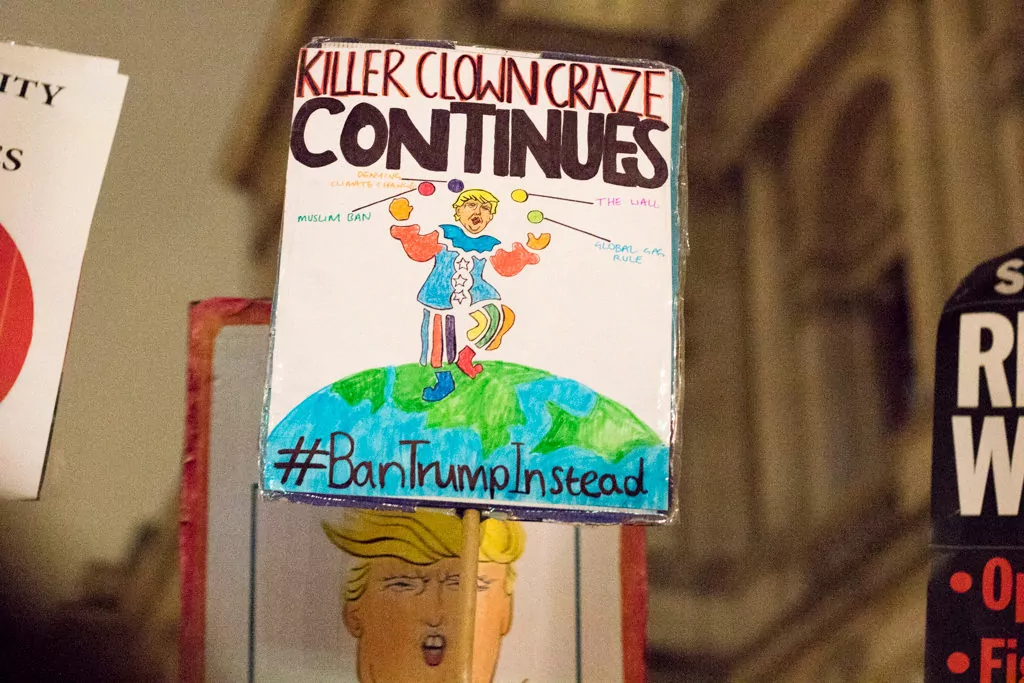 ITY
S
KILLER CLOWN CRAZE
CONTINUES
DENYING
CLIMATE CHANGE
MUSLIM BAN
THE WALL
GLOBAL GAG
RULE
#BanTrumpInstead
S
RE
W
• Op
• Fi